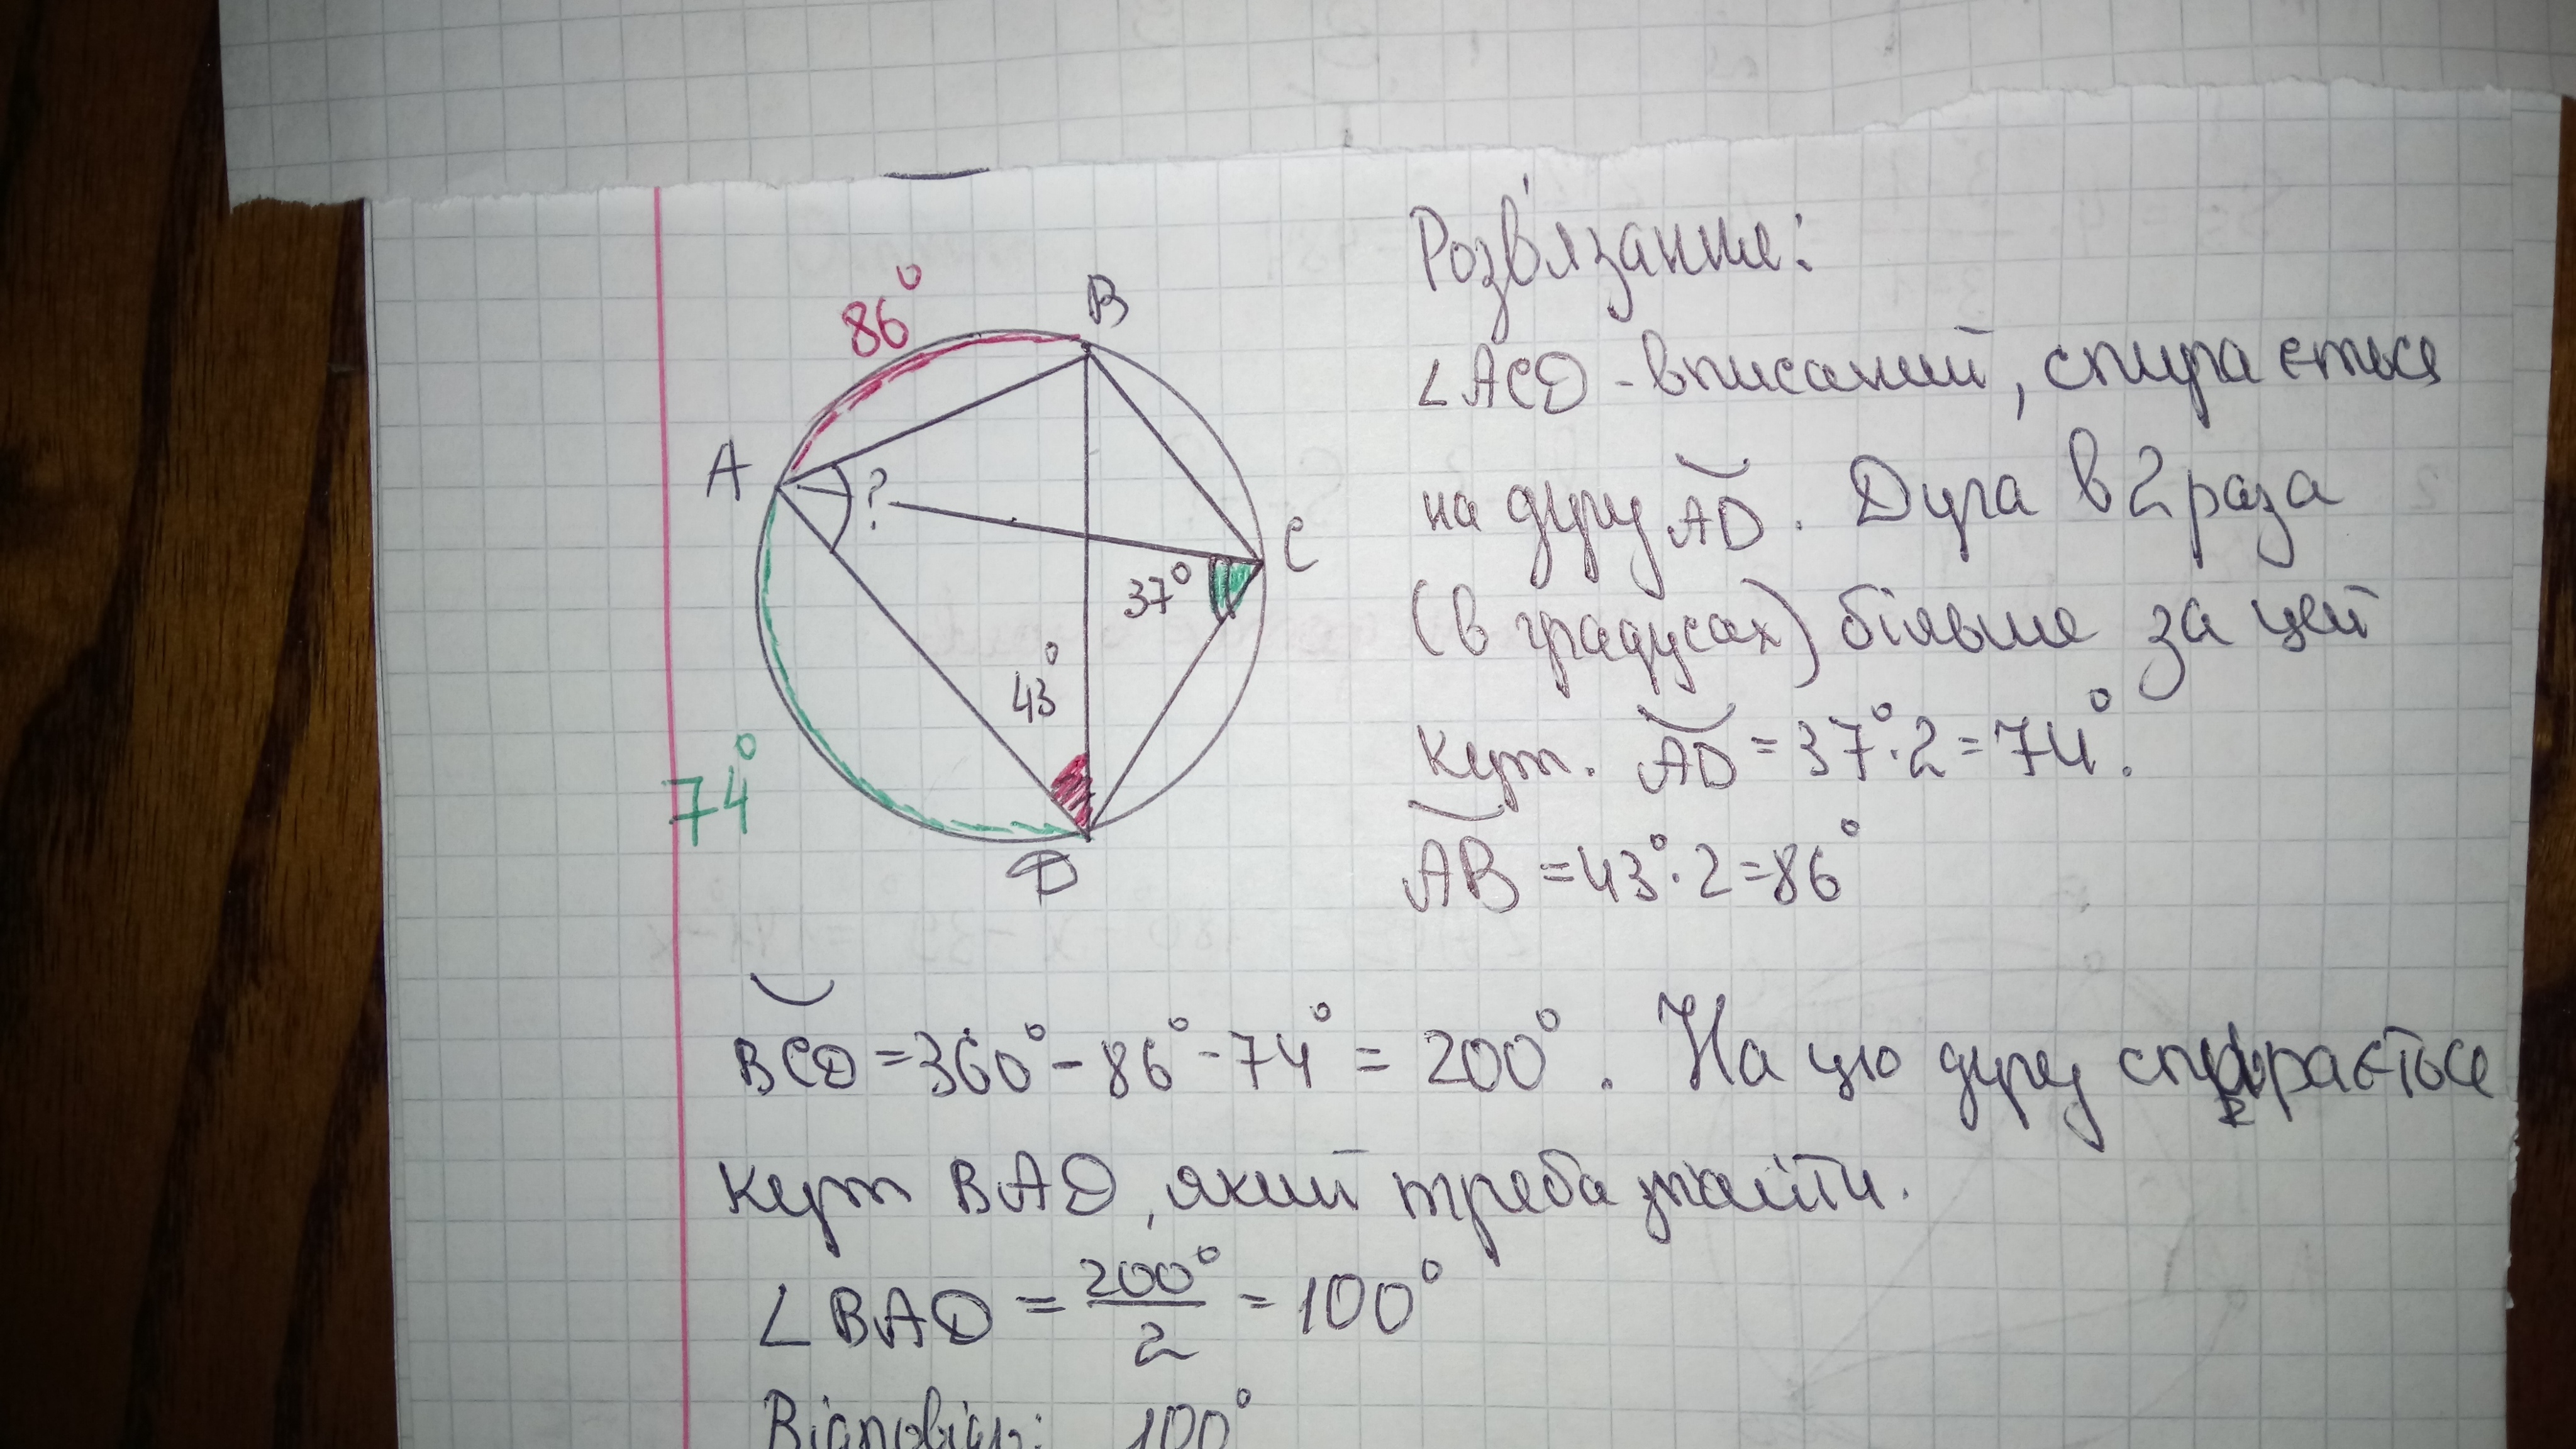 86°
B
A
?
C
37°
43°
74°
D
Розв'язання:
∠ACD - вписаний, спирається
на дугу AD. Дуга в 2 раза
(в градусах) більше за цей
кут. AD = 37°·2 = 74°.
AB = 43°·2 = 86°
BCD = 360° - 86° - 74° = 200°. На цю дугу спирається
кут BAD, який треба знайти.
∠BAD = 200°/2 = 100°
Відповідь: 100°